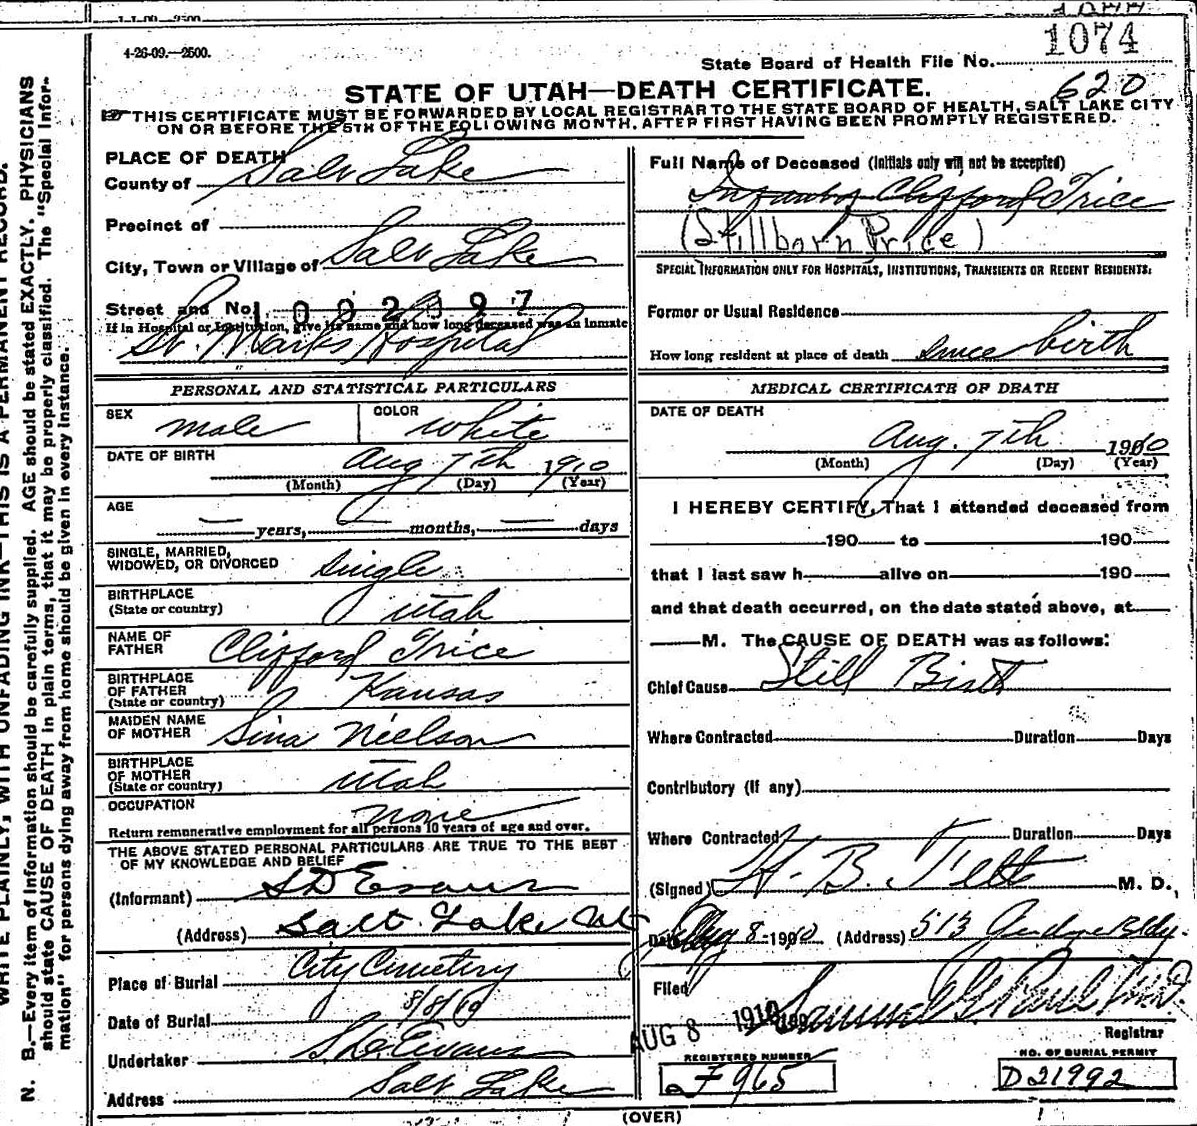 1074
4-26-09.—2500.
State Board of Health File No.
620
STATE OF UTAH—DEATH CERTIFICATE.
THIS CERTIFICATE MUST BE FORWARDED BY LOCAL REGISTRAR TO THE STATE BOARD OF HEALTH, SALT LAKE CITY
ON OR BEFORE THE 5TH OF THE FOLLOWING MONTH, AFTER FIRST HAVING BEEN PROMPTLY REGISTERED.
N. B.—Every item of information should be carefully supplied. AGE should be stated EXACTLY. PHYSICIANS
should state CAUSE OF DEATH in plain terms, that it may be properly classified. The "Special Infor-
mation" for persons dying away from home should be given in every instance.
WRITE PLAINLY, WITH UNFADING INK—THIS IS A PERMANENT RECORD.
PLACE OF DEATH
County of Salt Lake
Precinct of
City, Town or Village of Salt Lake
Street and No.
If in Hospital or Institution, give its name and how long deceased was an inmate
St. Marks Hospital
PERSONAL AND STATISTICAL PARTICULARS
SEX male COLOR white
DATE OF BIRTH Aug 7th 1910
(Month) (Day) (Year)
AGE
— years, — months, — days
SINGLE, MARRIED,
WIDOWED, OR DIVORCED Single
BIRTHPLACE
(State or country) Utah
NAME OF
FATHER Clifford Trice
BIRTHPLACE
OF FATHER
(State or country) Kansas
MAIDEN NAME
OF MOTHER Sina Nielson
BIRTHPLACE
OF MOTHER
(State or country) Utah
OCCUPATION none
Return remunerative employment for all persons 10 years of age and over.
THE ABOVE STATED PERSONAL PARTICULARS ARE TRUE TO THE BEST
OF MY KNOWLEDGE AND BELIEF
(Informant) S D Evans
(Address) Salt Lake Ut
Place of Burial City Cemetery
Date of Burial 8/8/10
Undertaker S. D. Evans
Address Salt Lake
Full Name of Deceased (Initials only will not be accepted)
Clifford Trice
(Stillborn Price)
SPECIAL INFORMATION ONLY FOR HOSPITALS, INSTITUTIONS, TRANSIENTS OR RECENT RESIDENTS:
Former or Usual Residence
How long resident at place of death since birth
MEDICAL CERTIFICATE OF DEATH
DATE OF DEATH
Aug. 7th 1910
(Month) (Day) (Year)
I HEREBY CERTIFY, That I attended deceased from
190 to 190
that I last saw h alive on 190
and that death occurred, on the date stated above, at
M. The CAUSE OF DEATH was as follows:
Chief Cause Still Birth
Where Contracted Duration Days
Contributory (if any)
Where Contracted Duration Days
(Signed) H. B. M. D.
Date Aug 8 1910 (Address) 513 Judge Bldg.
Filed
AUG 8 1910 Samuel G. Paul M.D.
Registrar
REGISTERED NUMBER
F965
NO. OF BURIAL PERMIT
D21992
(OVER)